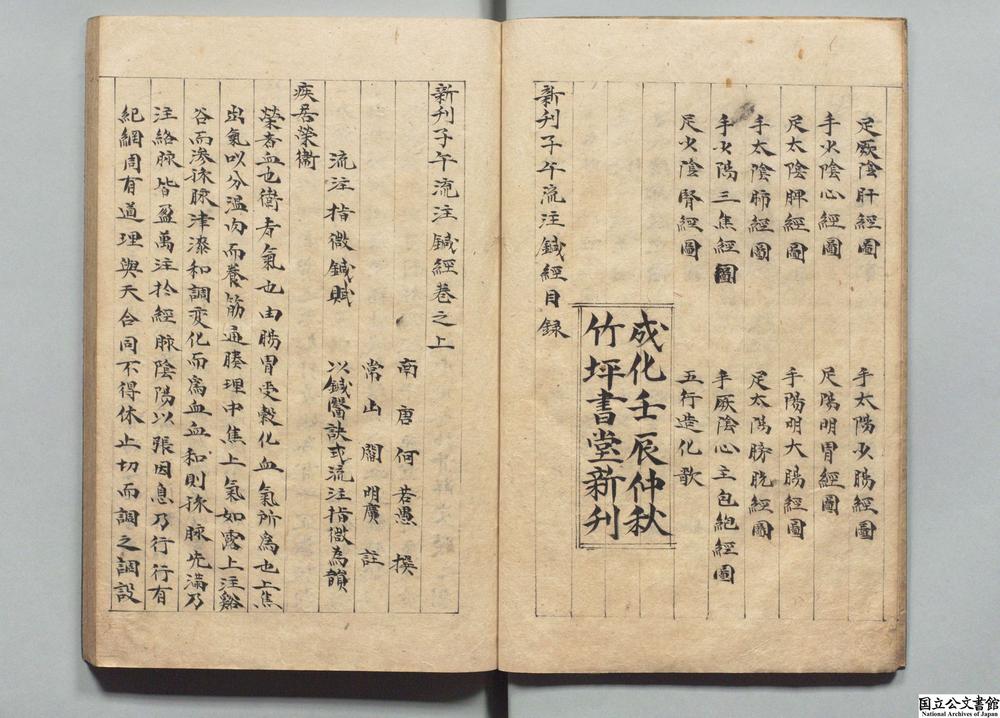 足厥陰肝經圖 手太陽少腸經圖
手火陰心經圖 足陽明胃經圖
足太陰脾經圖 手陽明大腸經圖
手太陰肺經圖 足太陽膀胱經圖
手火陽三焦經圖 手厥陰心主包絡經圖
足火陰腎經圖 五行造化歌
成化壬辰仲秋
竹坪書堂新刋
新刋子午流注鍼經目録
新刋子午流注鍼經卷之上
南唐何若愚 撰
常山閻明廣 註
流注指微鍼賦 以鍼醫訣式流注指微為韻
疾居榮衞
榮者血也衛者氣也由腸胃受穀化血氣所為也上焦
出氣以分溫肉而養筋通腠理中焦上氣如露上注谿
谷而滲孫脉津液和調變化而為血血和則孫脉先滿乃
注絡脉皆盈萬注於經脉陰陽以張因息乃行行有
紀綱周有道理與天合同不得休止切而調之調設
国立公文書館
National Archives of Japan